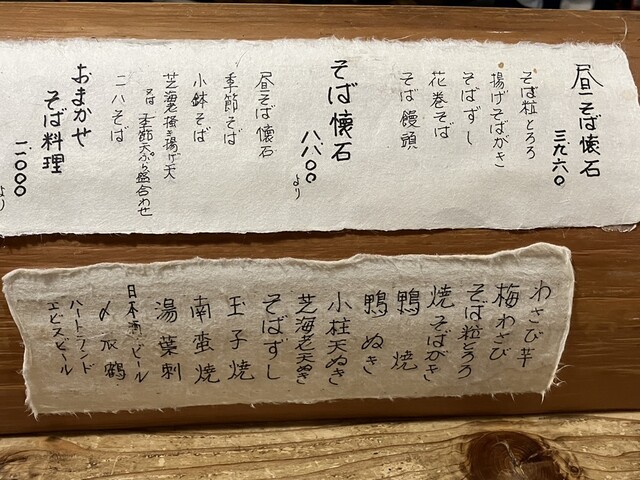 昼そば懐石
三.九六〇
そば粒とろろ
揚げそばがき
そばずし
花巻そば
そば饅頭
そば懐石
八.八〇〇
より
昼そば懐石
季節そば
小鉢そば
芝海老掻き揚げ天
又は 季節天ぷら盛合わせ
二八そば
おまかせ
そば料理
〇〇〇
より
わさび芋
梅わさび
そば粒とろろ
焼そばがき
鴨焼
鴨ぬき
小柱天ぬき
芝海老天ぬき
そばずし
玉子焼
南蛮焼
湯葉刺
日本酒、ビール
〆張鶴
ハートランド
エビスビール